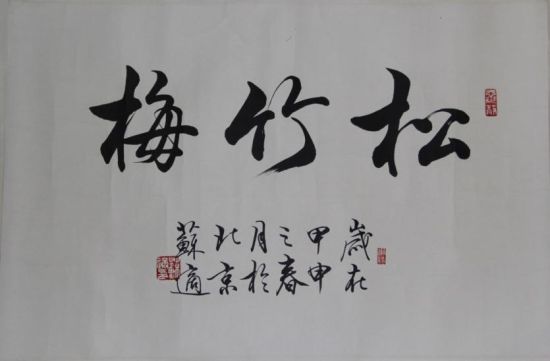 松竹梅
歲在
甲申
之春
月於
北京
蘇適